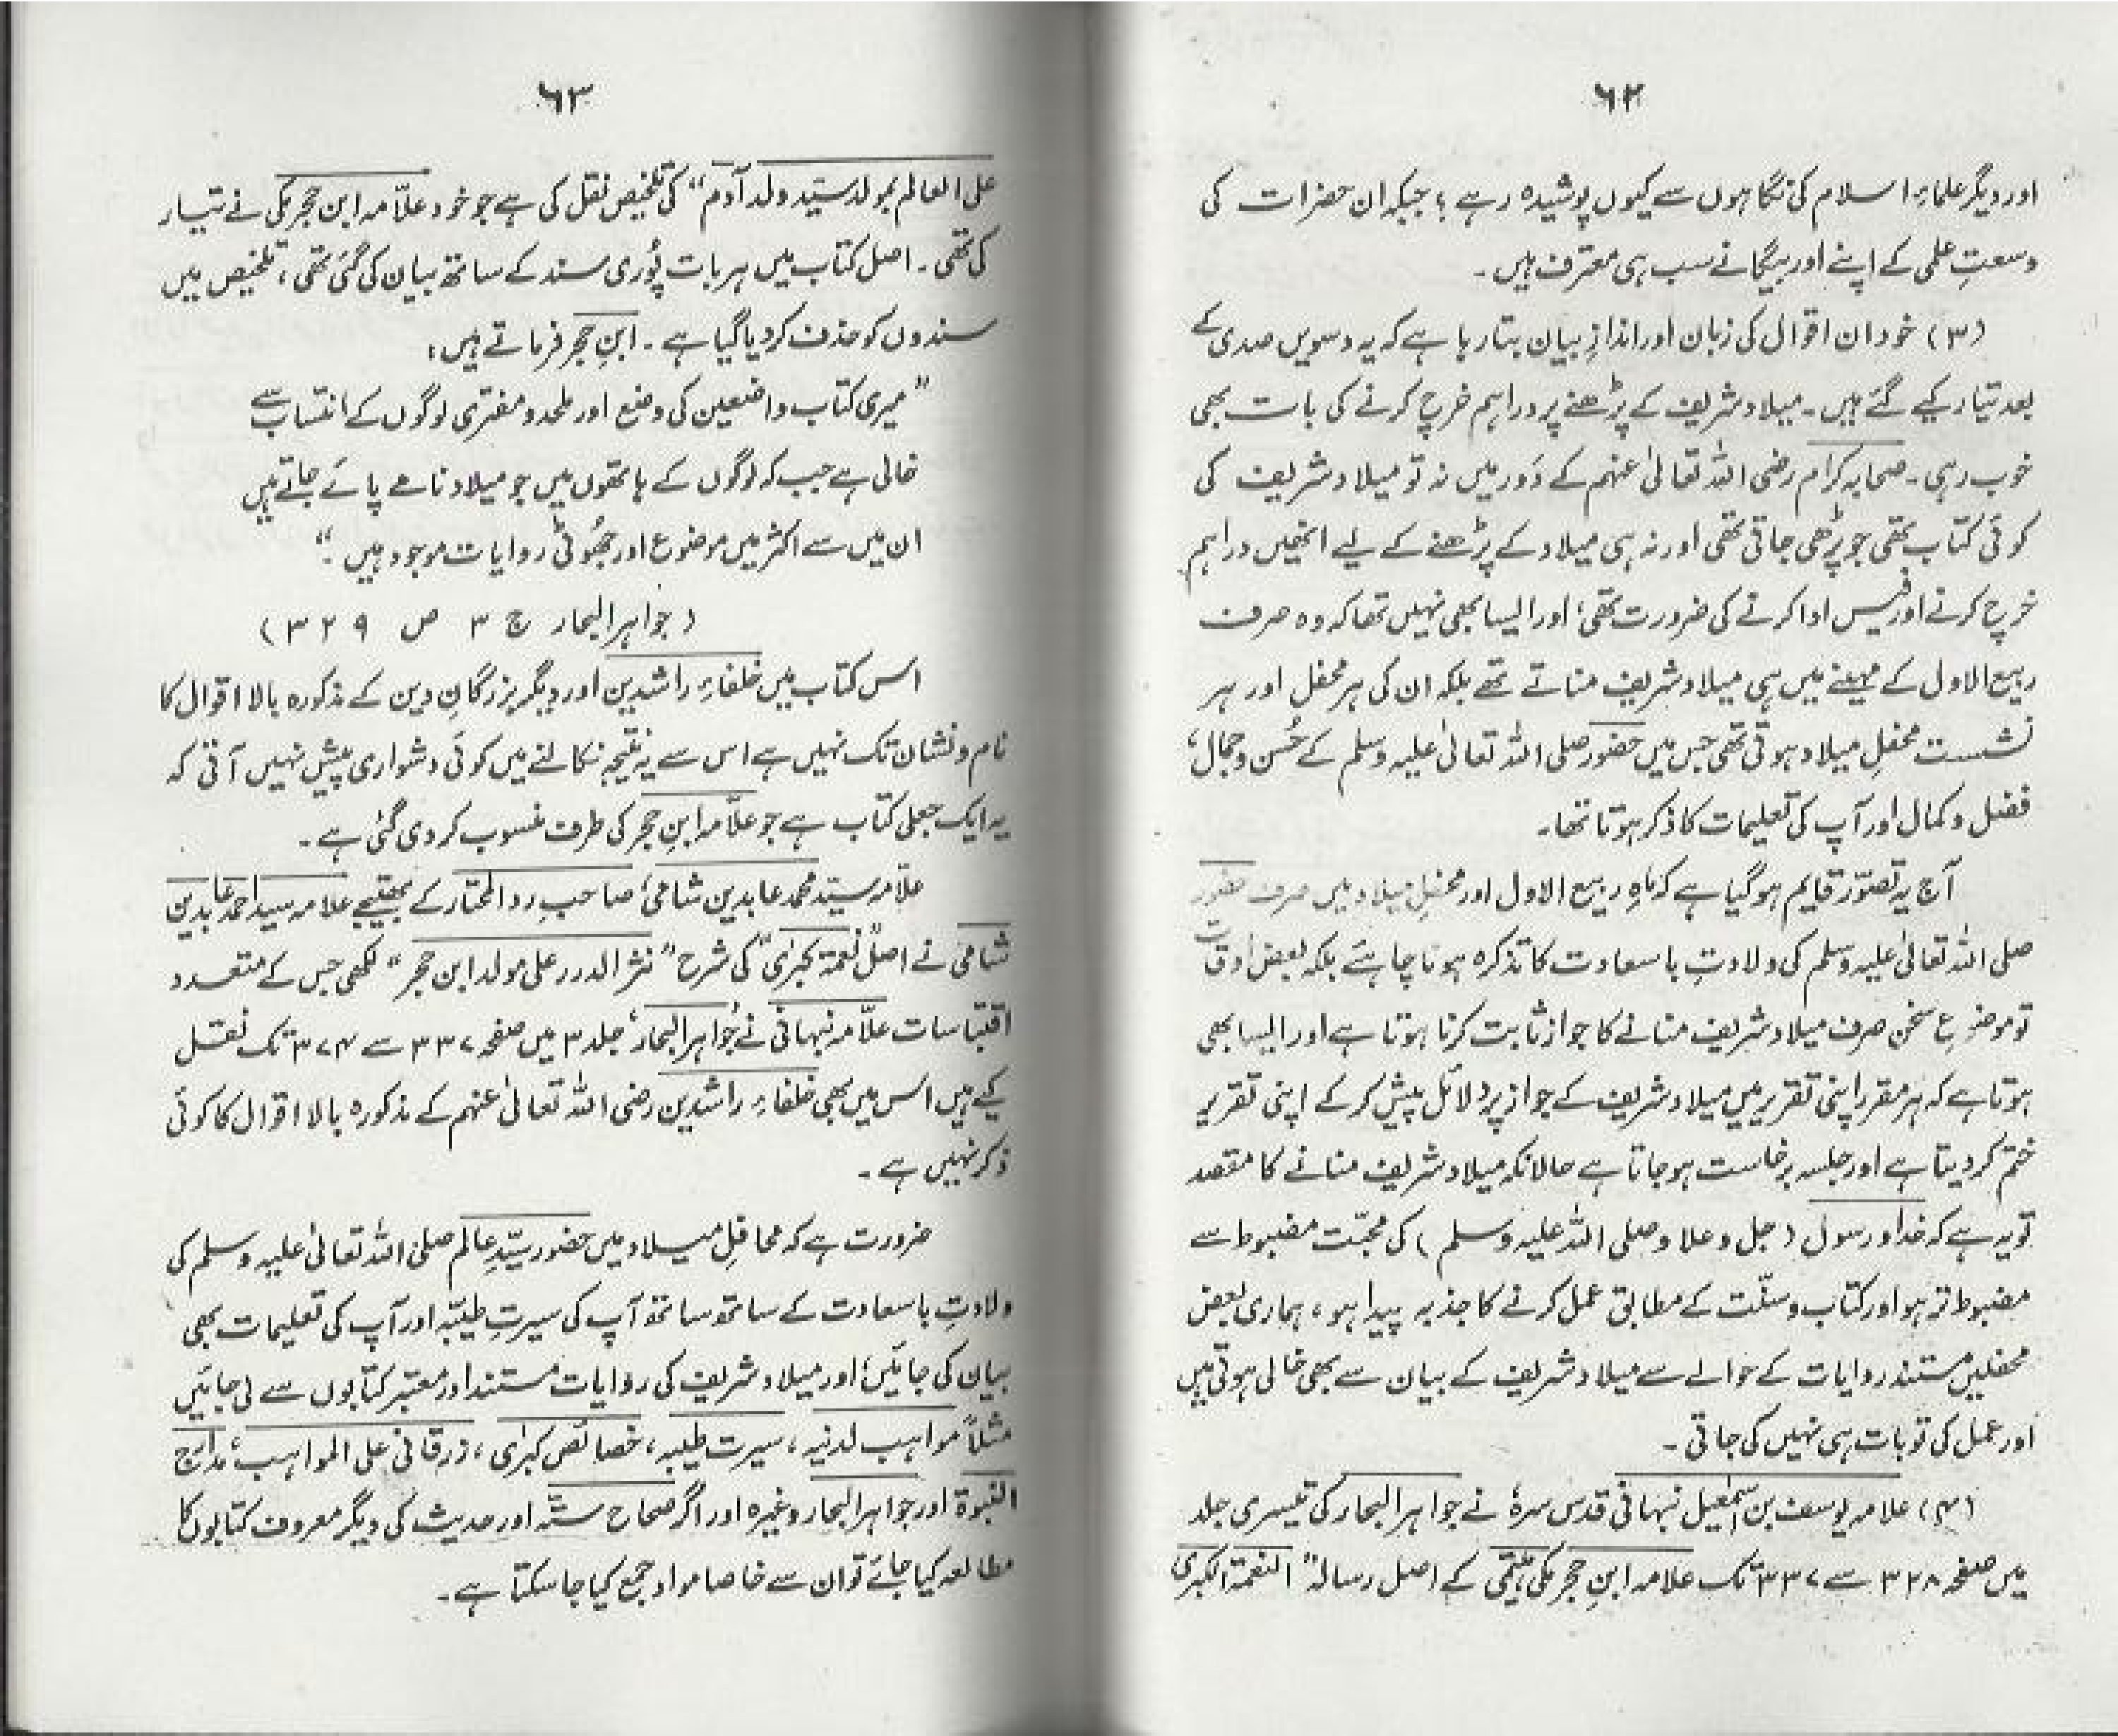 ٦٢
اور دیگر علماءِ اسلام کی نگاہوں سے کیوں پوشیدہ رہے ؟ جبکہ ان حضرات کی
وسعتِ علمی کے اپنے اور بیگانے سب ہی معترف ہیں ۔
(۳) خود ان اقوال کی زبان اور اندازِ بیان بتا رہا ہے کہ یہ دسویں صدی کے
بعد تیار کیے گئے ہیں ۔ میلاد شریف کے پڑھنے پر دراہم خرچ کرنے کی بات بھی
خوب رہی ۔ صحابہ کرام رضی اللہ تعالیٰ عنہم کے دَور میں نہ تو میلاد شریف کی
کوئی کتاب تھی جو پڑھی جاتی تھی اور نہ ہی میلاد کے پڑھنے کے لیے انھیں دراہم
خرچ کرنے اور فیس ادا کرنے کی ضرورت تھی، اور ایسا بھی نہیں تھا کہ وہ صرف
ربیع الاول کے مہینے میں ہی میلاد شریف مناتے تھے بلکہ ان کی ہر محفل اور ہر
نشست محفلِ میلاد ہوتی تھی جس میں حضور صلی اللہ تعالیٰ علیہ وسلم کے حُسن و جمال،
فضل و کمال اور آپ کی تعلیمات کا ذکر ہوتا تھا۔
آج یہ تصوّر قایم ہو گیا ہے کہ ماہِ ربیع الاول اور محفلِ میلاد میں صرف حضور
صلی اللہ تعالیٰ علیہ وسلم کی ولادتِ باسعادت کا تذکرہ ہونا چاہئے بلکہ بعض اوقات
تو موضوعِ سخن صرف میلاد شریف منانے کا جواز ثابت کرنا ہوتا ہے اور ایسا بھی
ہوتا ہے کہ ہر مقرر اپنی تقریر میں میلاد شریف کے جواز پر دلائل پیش کر کے اپنی تقریر
ختم کر دیتا ہے اور جلسہ برخاست ہو جاتا ہے حالانکہ میلاد شریف منانے کا مقصد
تو یہ ہے کہ خدا و رسول (جل و علا و صلی اللہ علیہ وسلم) کی محبّت مضبوط سے
مضبوط تر ہو اور کتاب و سنّت کے مطابق عمل کرنے کا جذبہ پیدا ہو ، ہماری بعض
محفلیں مستند روایات کے حوالے سے میلاد شریف کے بیان سے بھی خالی ہوتی ہیں
اور عمل کی تو بات ہی نہیں کی جاتی ۔
(۴) علامہ یوسف بن اسمٰعیل نبہانی قدس سرہٗ نے جواہر البحار کی تیسری جلد
میں صفحہ ۳۲۸ سے ۳۳۷ تک علامہ ابنِ حجر مکی ہیتمی کے اصل رسالہ "النعمۃ الکبریٰ
٦٣
علی العالم بمولد سیّد ولد آدم" کی تلخیص نقل کی ہے جو خود علاّمہ ابن حجر مکی نے تیار
کی تھی ۔ اصل کتاب میں ہر بات پُوری سند کے ساتھ بیان کی گئی تھی ، تلخیص میں
سندوں کو حذف کر دیا گیا ہے ۔ ابنِ حجر فرماتے ہیں :
"میری کتاب واضعین کی وضع اور ملحد و مفتری لوگوں کے انتساب سے
خالی ہے جب کہ لوگوں کے ہاتھوں میں جو میلاد نامے پائے جاتے ہیں
ان میں سے اکثر میں موضوع اور جھُوٹی روایات موجود ہیں ۔"
(جواہر البحار ج ۳ ص ۳۲۹)
اس کتاب میں خلفاءِ راشدین اور دیگر بزرگانِ دین کے مذکورہ بالا اقوال کا
نام و نشان تک نہیں ہے اس سے یہ نتیجہ نکالنے میں کوئی دشواری پیش نہیں آتی کہ
یہ ایک جعلی کتاب ہے جو علاّمہ ابنِ حجر کی طرف منسوب کر دی گئی ہے ۔
علاّمہ سیّد محمد عابدین شامی، صاحبِ رد المحتار کے بھتیجے علامہ سید احمد عابدین
شامی نے اصل "نعمۃ کبریٰ" کی شرح "نثر الدرر علی مولد ابن حجر" لکھی جس کے متعدد
اقتباسات علاّمہ نبہانی نے جواہر البحار، جلد ۳ میں صفحہ ۳۳۷ سے ۳۷۴ تک نقل
کیے ہیں اس میں بھی خلفاءِ راشدین رضی اللہ تعالیٰ عنہم کے مذکورہ بالا اقوال کا کوئی
ذکر نہیں ہے ۔
ضرورت ہے کہ محافلِ میلاد میں حضور سیّدِ عالم صلی اللہ تعالیٰ علیہ وسلم کی
ولادتِ باسعادت کے ساتھ ساتھ آپ کی سیرتِ طیبّہ اور آپ کی تعلیمات بھی
بیان کی جائیں، اور میلاد شریف کی روایات مستند اور معتبر کتابوں سے لی جائیں
مثلاً مواہب لدنیہ ، سیرت طیبہ ، خصائص کبرٰی ، زرقانی علی المواہب، مدارج
النبوۃ اور جواہر البحار وغیرہ اور اگر صحاح ستّہ اور حدیث کی دیگر معروف کتابوں کا
مطالعہ کیا جائے تو ان سے خاصا مواد جمع کیا جا سکتا ہے ۔